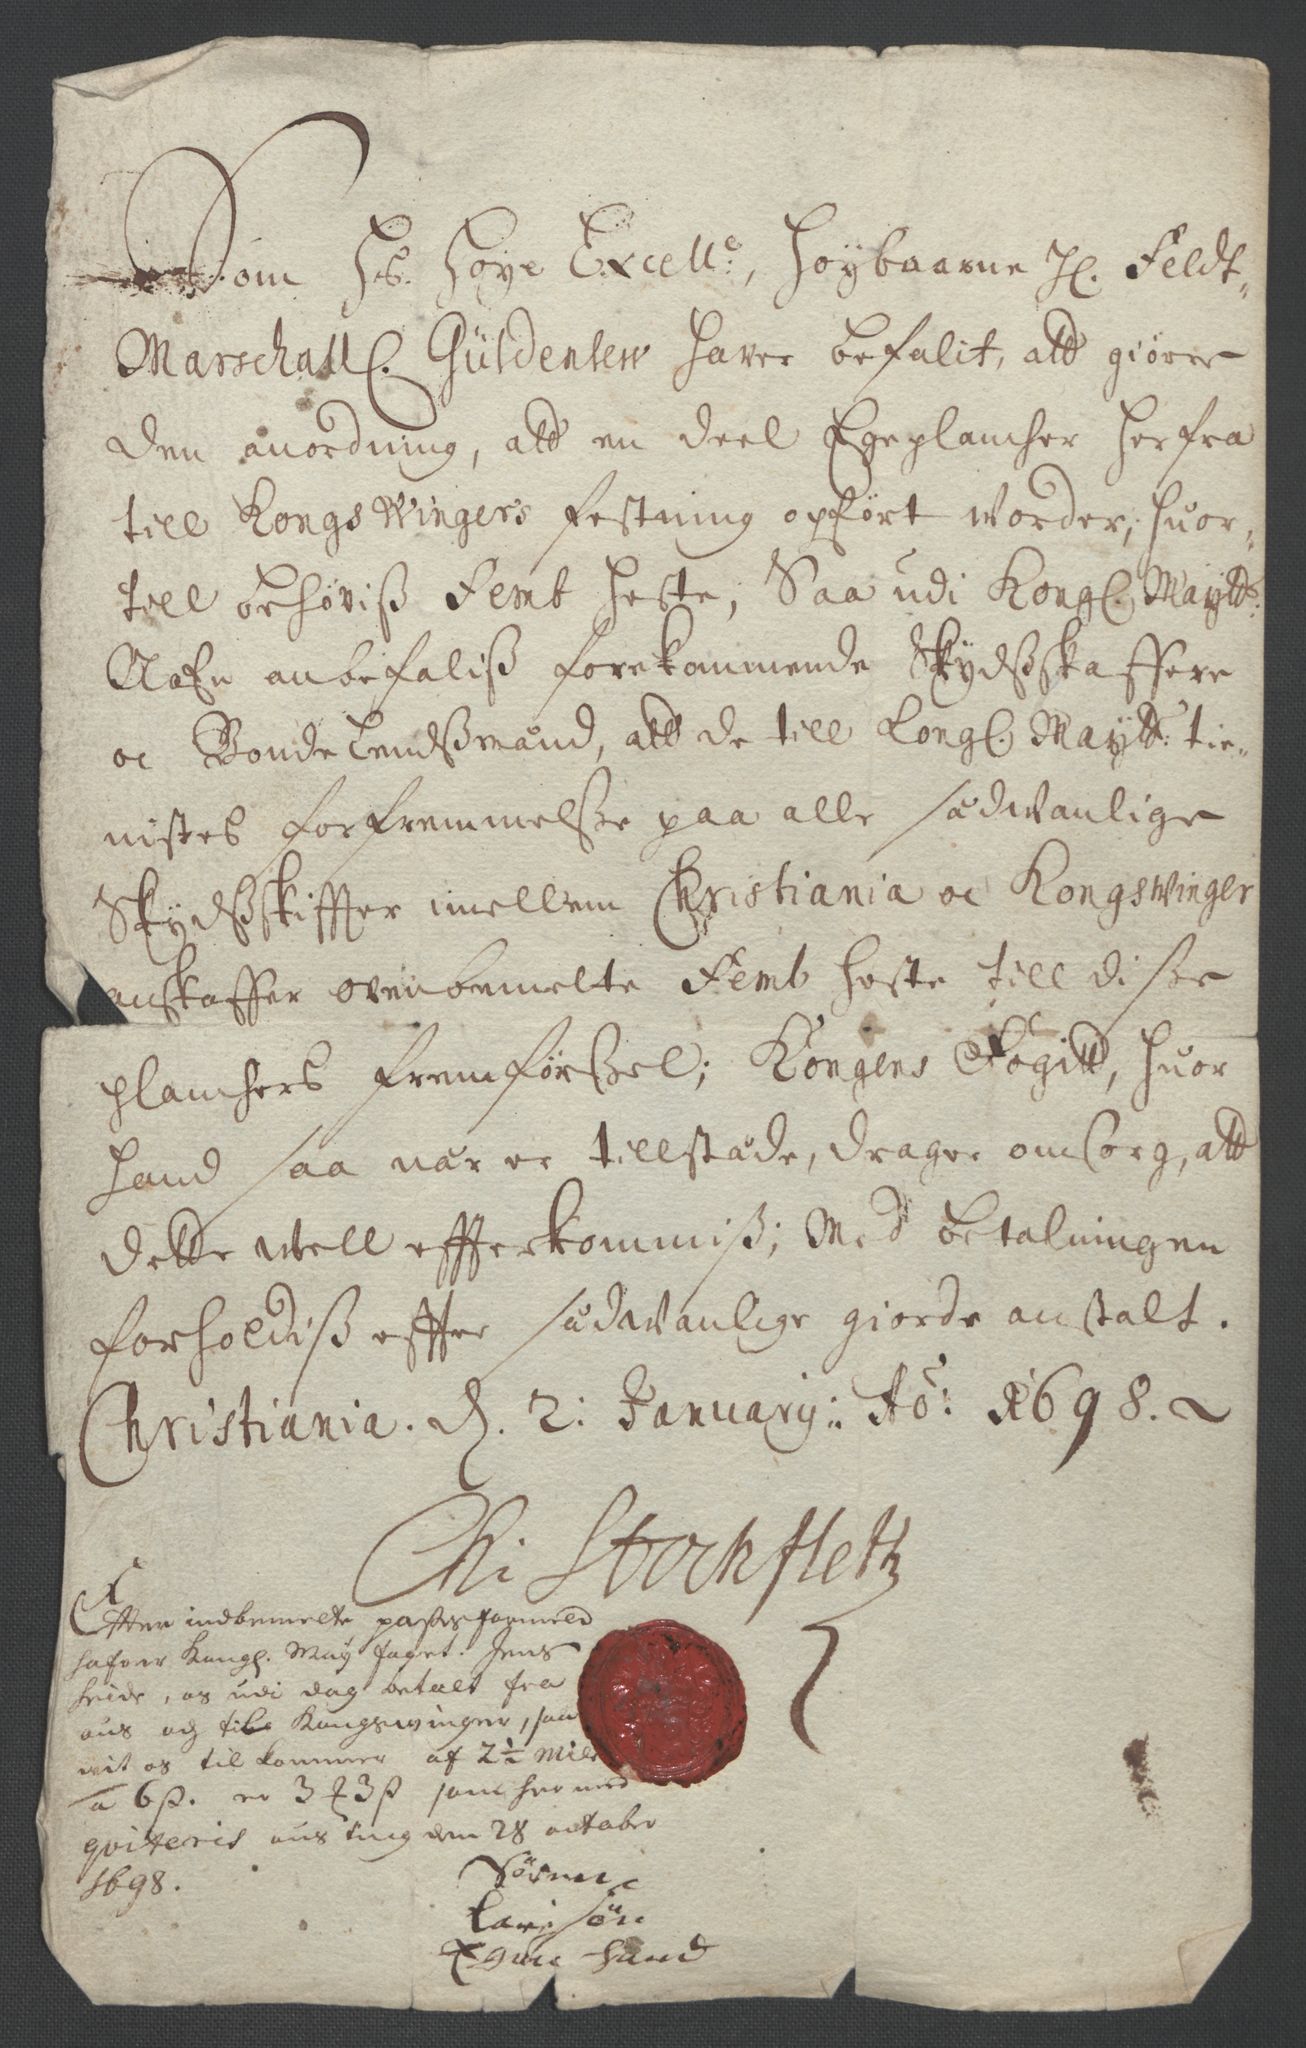 Som Hs. Høye Excell:, Høybaarne H. Feldt-
Marschall. Güldenlew hafver befalit, att giøre
den anordning, att en deel Egeplancher her fra
till Kongswingers festning opført worder, huor-
till behøviß Femb heste, Saa udi Kongl. Maytts:
Nafn anbefaliß forekommende Skydßskaffere
oc Bonde Lendßmænd, att de till Kongl. Maytts: tie-
nistes forfremmelße paa alle sædwanlige
Skydßskiffter imellem Christiania oc Kongswinger
anskaffer ovenbemelte Femb heste till diße
planchers fremførßel; Kongens Fogitt, huor
hand saa nær er tillstæde, drager omsorg, att
dette well effterkommiß; Med betalningen
forholdiß effter sædwanlige giorde anstalt.
Christiania. d. 2: January: Ao: 1698.
Chr Stockfleth
Efter indbemelte paßes formeld
hafver Kongl. May foget. Jens
heide, os udi dag betalt fra
ous og til Kongswinger, saa
vit os til kommer af 2½ Mile
a 6ß. er 3 ß som hermed
qviteris ous ting den 28 october
1698.
Søren
Larssøn
Egen Hand